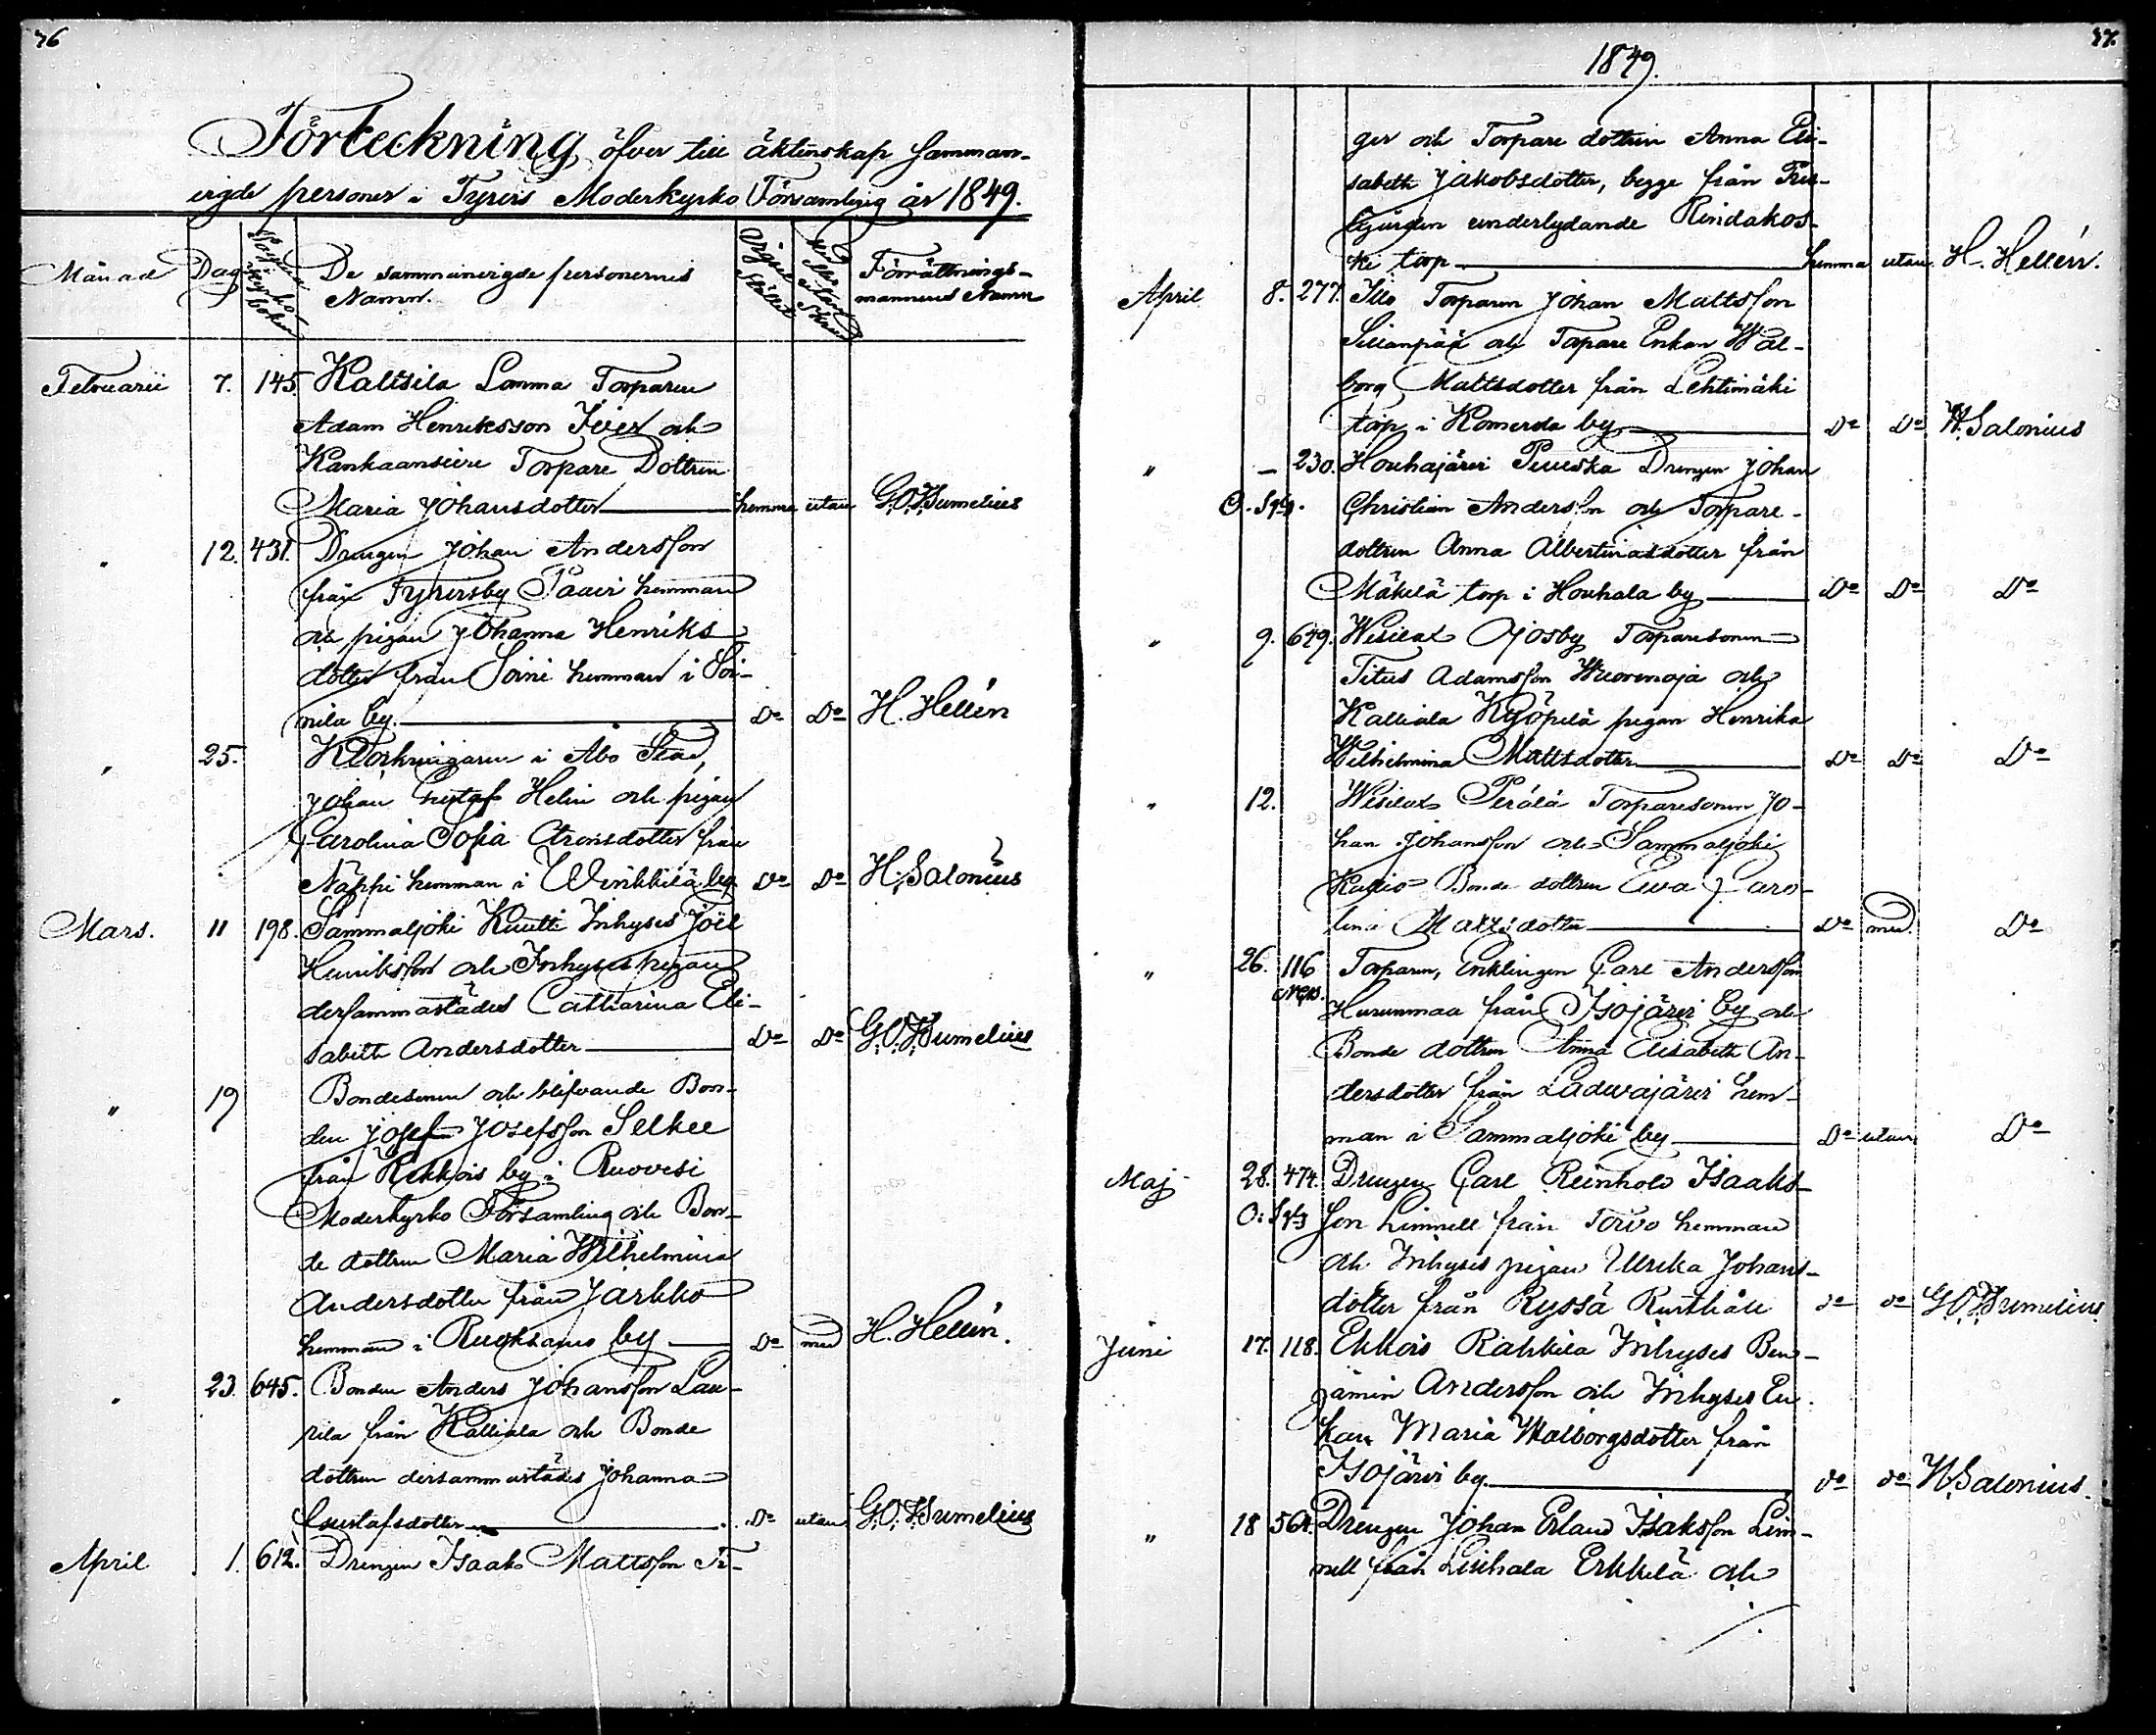 46
Förteckning öfver till äktenskap samman-
vigde personer i Tyrvis Moderkyrko Församling år 1849.
Månad Dag Pagina i Kyrkoboken De sammanvigde personernes Namn. Vigsel Stället Med eller utan Skrud Förrättnings-mannens Namn
Februarii 7. 145. Kaltsila Lamma Torparen
Adam Henriksson och
Torpare Dottren
Maria Johansdotter hemma utan G.O. Sumelius
" 12. 431. Drengen Johan Andersson
från Tyrvisby Paavi hemman
och pigan Johanna Henriks
dotter från Soini hemman i Soi-
nila by. Do Do H. Hellén
" 25. i Åbo Stad,
Johan Gustaf Helin och pigan
Carolina Sofia från
Näppi hemman i Winkkilä by Do Do H. Salonius
Mars. 11 198. Sammaljoki Kuutti Inhyses Joël
Henriksson och Inhyses pigan
dersammastädes Catharina Eli-
sabeth Andersdotter Do Do G.O. Sumelius
" 19 Bondesonen och blifvande Bon-
den Josef Josefsson Selkee
från Kekkois by i Ruovesi
Moderkyrko Församling och Bon-
de dottren Maria Wilhelmina
Andersdotter från Jarkko
hemman i by Do med H. Hellén.
" 23. 645. Bonden Anders Johansson Lau-
rila från Kalliala och Bonde
dottren dersammastädes Johanna
Gustafsdotter Do utan G.O. Sumelius
April 1. 612. Drengen Isaak Mattsson Fr-
47.
1849.
ger och Torpare dottren Anna Eli-
sabeth Jakobsdotter, begge från
underlydande Rindakos-
ki torp hemma utan H. Hellén.
April 8. 277. Illo Torparen Johan Mattsson
Sillanpää och Torpare Enkan Wal-
borg Mattsdotter från Lehtimäki
torp i by Do Do H. Salonius
" – 230. Houhajärvi Drengen Johan
Christian Andersson och Torpare-
dottren Anna Albertinasdotter från
Mäkelä torp i Houhala by Do Do Do
" 9. 649. Wesilax Torparesonen
Titus Adamsson Wuorenoja och
Kalliala Kyöpelä pigan Henrika
Wilhelmina Mattsdotter Do Do Do
" 12. Wesilax Perälä Torparesonen Jo-
han Johansson och Sammaljoki
Bonde dottren Ewa Caro-
lina Mattsdotter Do med Do
" 26. 116 Torparen, Enklingen Carl Andersson
Hurunmaa från Isojärvi by och
Bonde dottren Anna Elisabeth An-
dersdotter från Ladwajärvi hem-
man i Sammaljoki by Do utan Do
Maj 28. 474. Drengen Carl Reinhold Isaaks-
son Limnell från Torvo hemman
och Inhyses pigan Ulrika Johans-
dotter från Ryssä Rusthåll do do G.O. Sumelius
Juni 17. 118. Ekkois Rahkila Inhyses Ben-
jamin Andersson och Inhyses En-
kan Maria Walborgsdotter från
Isojärvi by do do H. Salonius.
" 18 564. Drengen Johan Erland Isaksson Lim-
nell från Liuhala Erkkilä och